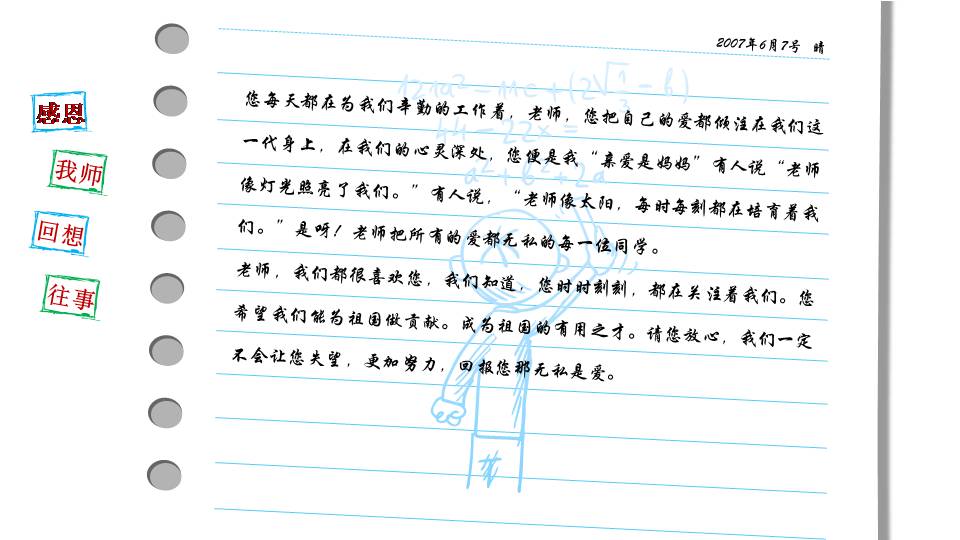 2007年6月7号 晴
感恩
我师
回想
往事
您每天都在为我们辛勤的工作着，老师，您把自己的爱都倾注在我们这
一代身上，在我们的心灵深处，您便是我“亲爱是妈妈”有人说“老师
像灯光照亮了我们。”有人说，“老师像太阳，每时每刻都在培育着我
们。”是呀！老师把所有的爱都无私的每一位同学。
老师，我们都很喜欢您，我们知道，您时时刻刻，都在关注着我们。您
希望我们能为祖国做贡献。成为祖国的有用之才。请您放心，我们一定
不会让您失望，更加努力，回报您那无私是爱。
a²+b²+2a